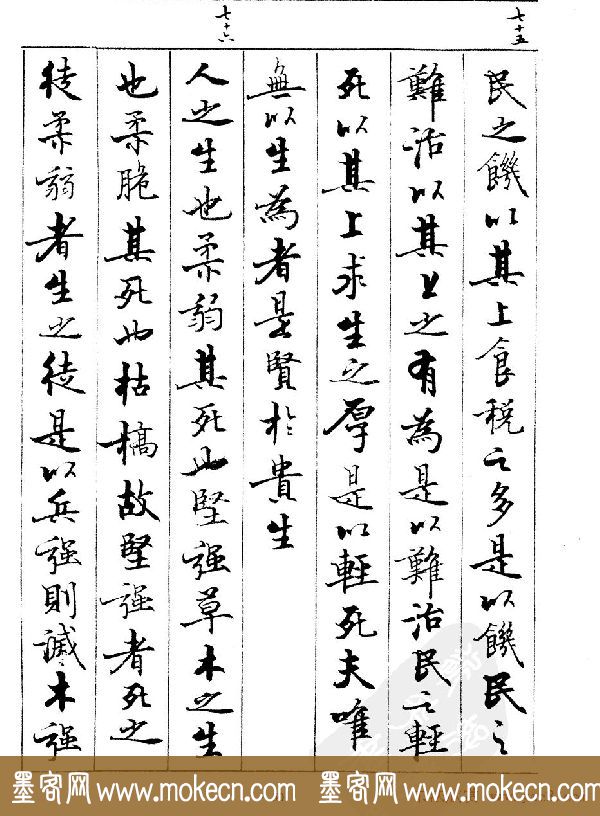 七十五
民之饑以其上食税之多是以饑民之
難治以其上之有為是以難治民之輕
死以其上求生之厚是以輕死夫唯
無以生為者是賢於貴生
七十六
人之生也柔弱其死也堅强草木之生
也柔脆其死也枯槁故堅强者死之
徒柔弱者生之徒是以兵强則滅木强
墨客网 www.mokecn.com 墨客网 www.mokecn.com